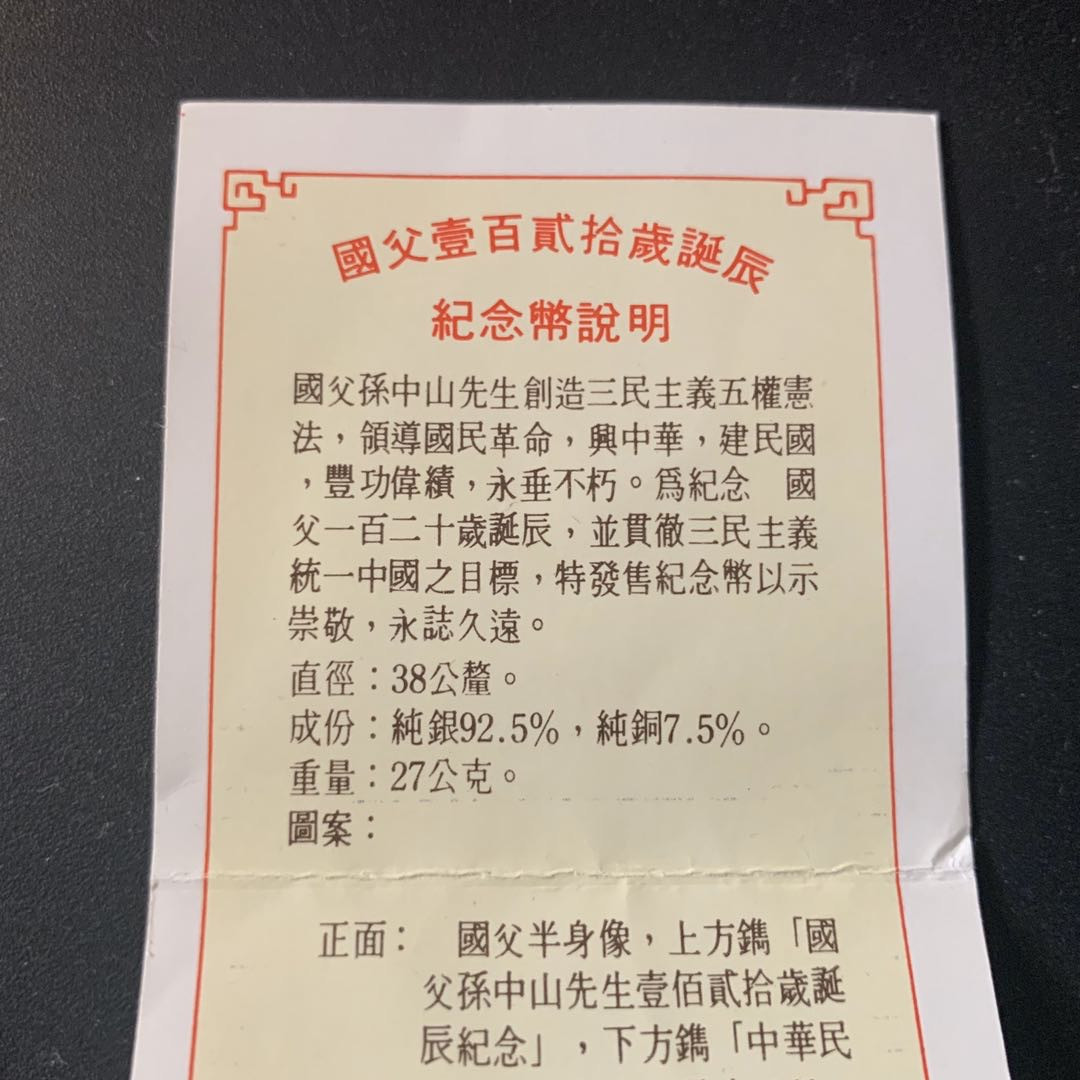 國父壹百貳拾歲誕辰
紀念幣說明
國父孫中山先生創造三民主義五權憲
法，領導國民革命，興中華，建民國
，豐功偉績，永垂不朽。爲紀念　國
父一百二十歲誕辰，並貫徹三民主義
統一中國之目標，特發售紀念幣以示
崇敬，永誌久遠。
直徑：38公釐。
成份：純銀92.5%，純銅7.5%。
重量：27公克。
圖案：
正面：　國父半身像，上方鐫「國
父孫中山先生壹佰貳拾歲誕
辰紀念」，下方鐫「中華民